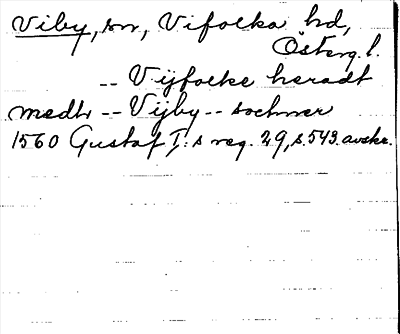 Viby, sn, Vifolka hd,
Österg. l.
-- Vijfolke heradt
medh -- Vijby -- sochner
1560 Gustaf I:s reg. 29, s. 543. avskr.